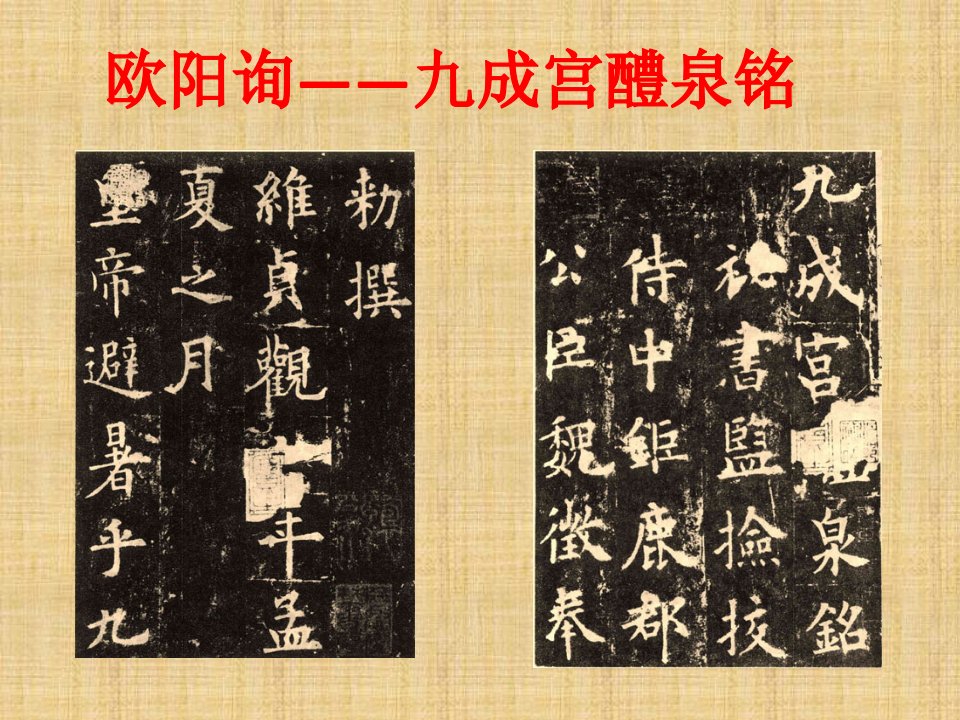 欧阳询——九成宫醴泉铭
九成宫泉銘
秘書監撿挍
侍中鉅鹿郡
公臣魏徵奉
勑撰
維貞觀年孟
夏之月
皇帝避暑乎九